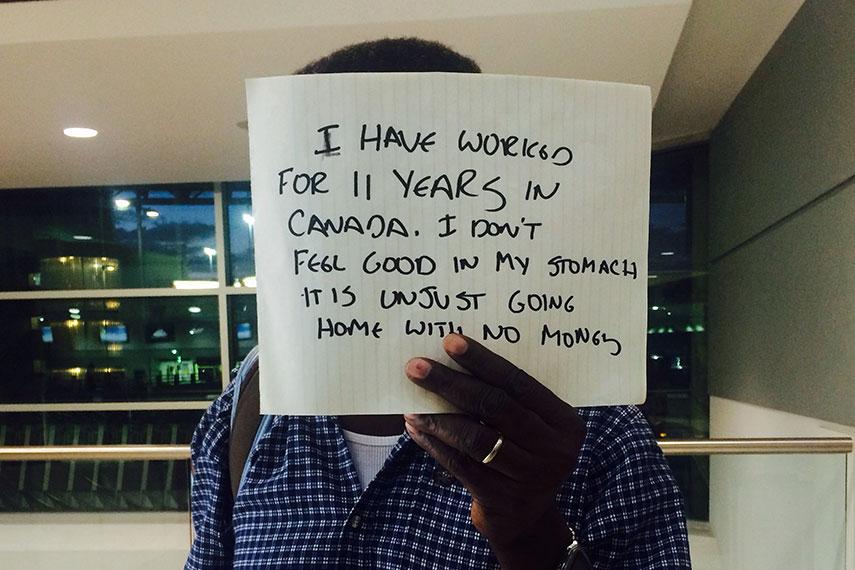 I HAVE WORKED
FOR 11 YEARS IN
CANADA. I DON'T
FEEL GOOD IN MY STOMACH
IT IS UNJUST GOING
HOME WITH NO MONEY